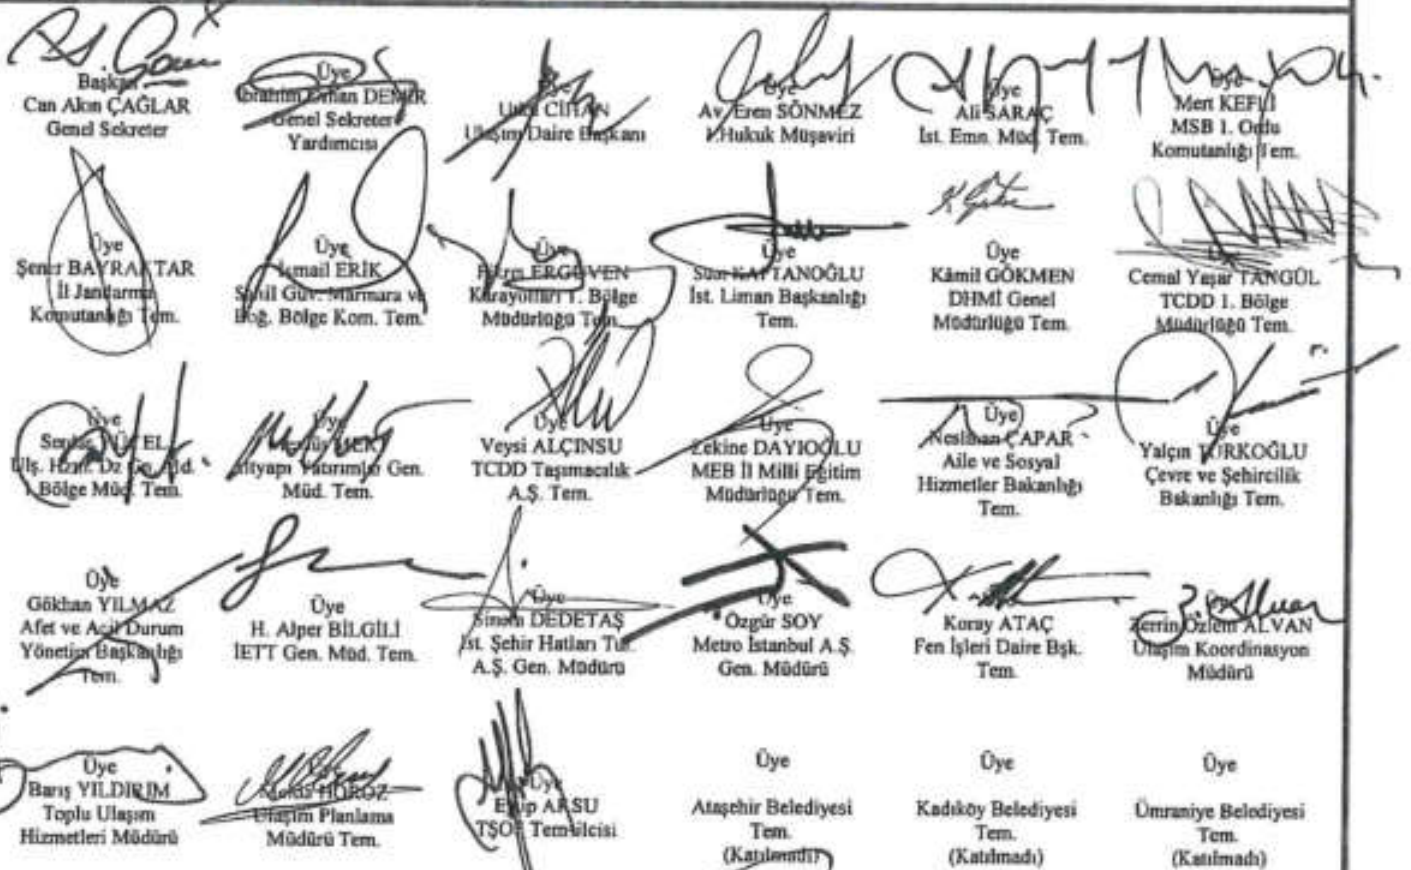 Başkan
Can Akın ÇAĞLAR
Genel Sekreter
Üye
İbrahim Orhan DEMİR
Genel Sekreter
Yardımcısı
Üye
Utku CİHAN
Ulaşım Daire Başkanı
Üye
Av. Eren SÖNMEZ
1.Hukuk Müşaviri
Üye
Ali SARAÇ
İst. Emn. Müd. Tem.
Üye
Mert KEFLİ
MSB 1. Ordu
Komutanlığı Tem.
Üye
Şener BAYRAKTAR
İl Jandarma
Komutanlığı Tem.
Üye
İsmail ERİK
Sahil Güv. Marmara ve
Boğ. Bölge Kom. Tem.
Üye
ERGÜVEN
Karayolları 1. Bölge
Müdürlüğü Tem.
Üye
KAPTANOĞLU
İst. Liman Başkanlığı
Tem.
Üye
Kâmil GÖKMEN
DHMİ Genel
Müdürlüğü Tem.
Üye
Cemal Yaşar TANGÜL
TCDD 1. Bölge
Müdürlüğü Tem.
Üye
Serdar YÜCEL
Ulş. Hzm. Dz
1.Bölge Müd. Tem.
Üye
MERT
Altyapı Yatırımları Gen.
Müd. Tem.
Üye
Veysi ALÇINSU
TCDD Taşımacılık
A.Ş. Tem.
Üye
Zekine DAYIOĞLU
MEB İl Milli Eğitim
Müdürlüğü Tem.
Üye
Neslihan ÇAPAR
Aile ve Sosyal
Hizmetler Bakanlığı
Tem.
Üye
Yalçın TÜRKOĞLU
Çevre ve Şehircilik
Bakanlığı Tem.
Üye
Gökhan YILMAZ
Afet ve Acil Durum
Yönetim Başkanlığı
Tem.
Üye
H. Alper BİLGİLİ
İETT Gen. Müd. Tem.
Üye
Sinem DEDETAŞ
İst. Şehir Hatları Tur.
A.Ş. Gen. Müdürü
Üye
Özgür SOY
Metro İstanbul A.Ş.
Gen. Müdürü
Koray ATAÇ
Fen İşleri Daire Bşk.
Tem.
Zerrin Özlem ALVAN
Ulaşım Koordinasyon
Müdürü
Üye
Barış YILDIRIM
Toplu Ulaşım
Hizmetleri Müdürü
HOROZ
Ulaşım Planlama
Müdürü Tem.
Üye
Eyüp AKSU
TŞOF Temsilcisi
Üye
Ataşehir Belediyesi
Tem.
(Katılmadı)
Üye
Kadıköy Belediyesi
Tem.
(Katılmadı)
Üye
Ümraniye Belediyesi
Tem.
(Katılmadı)